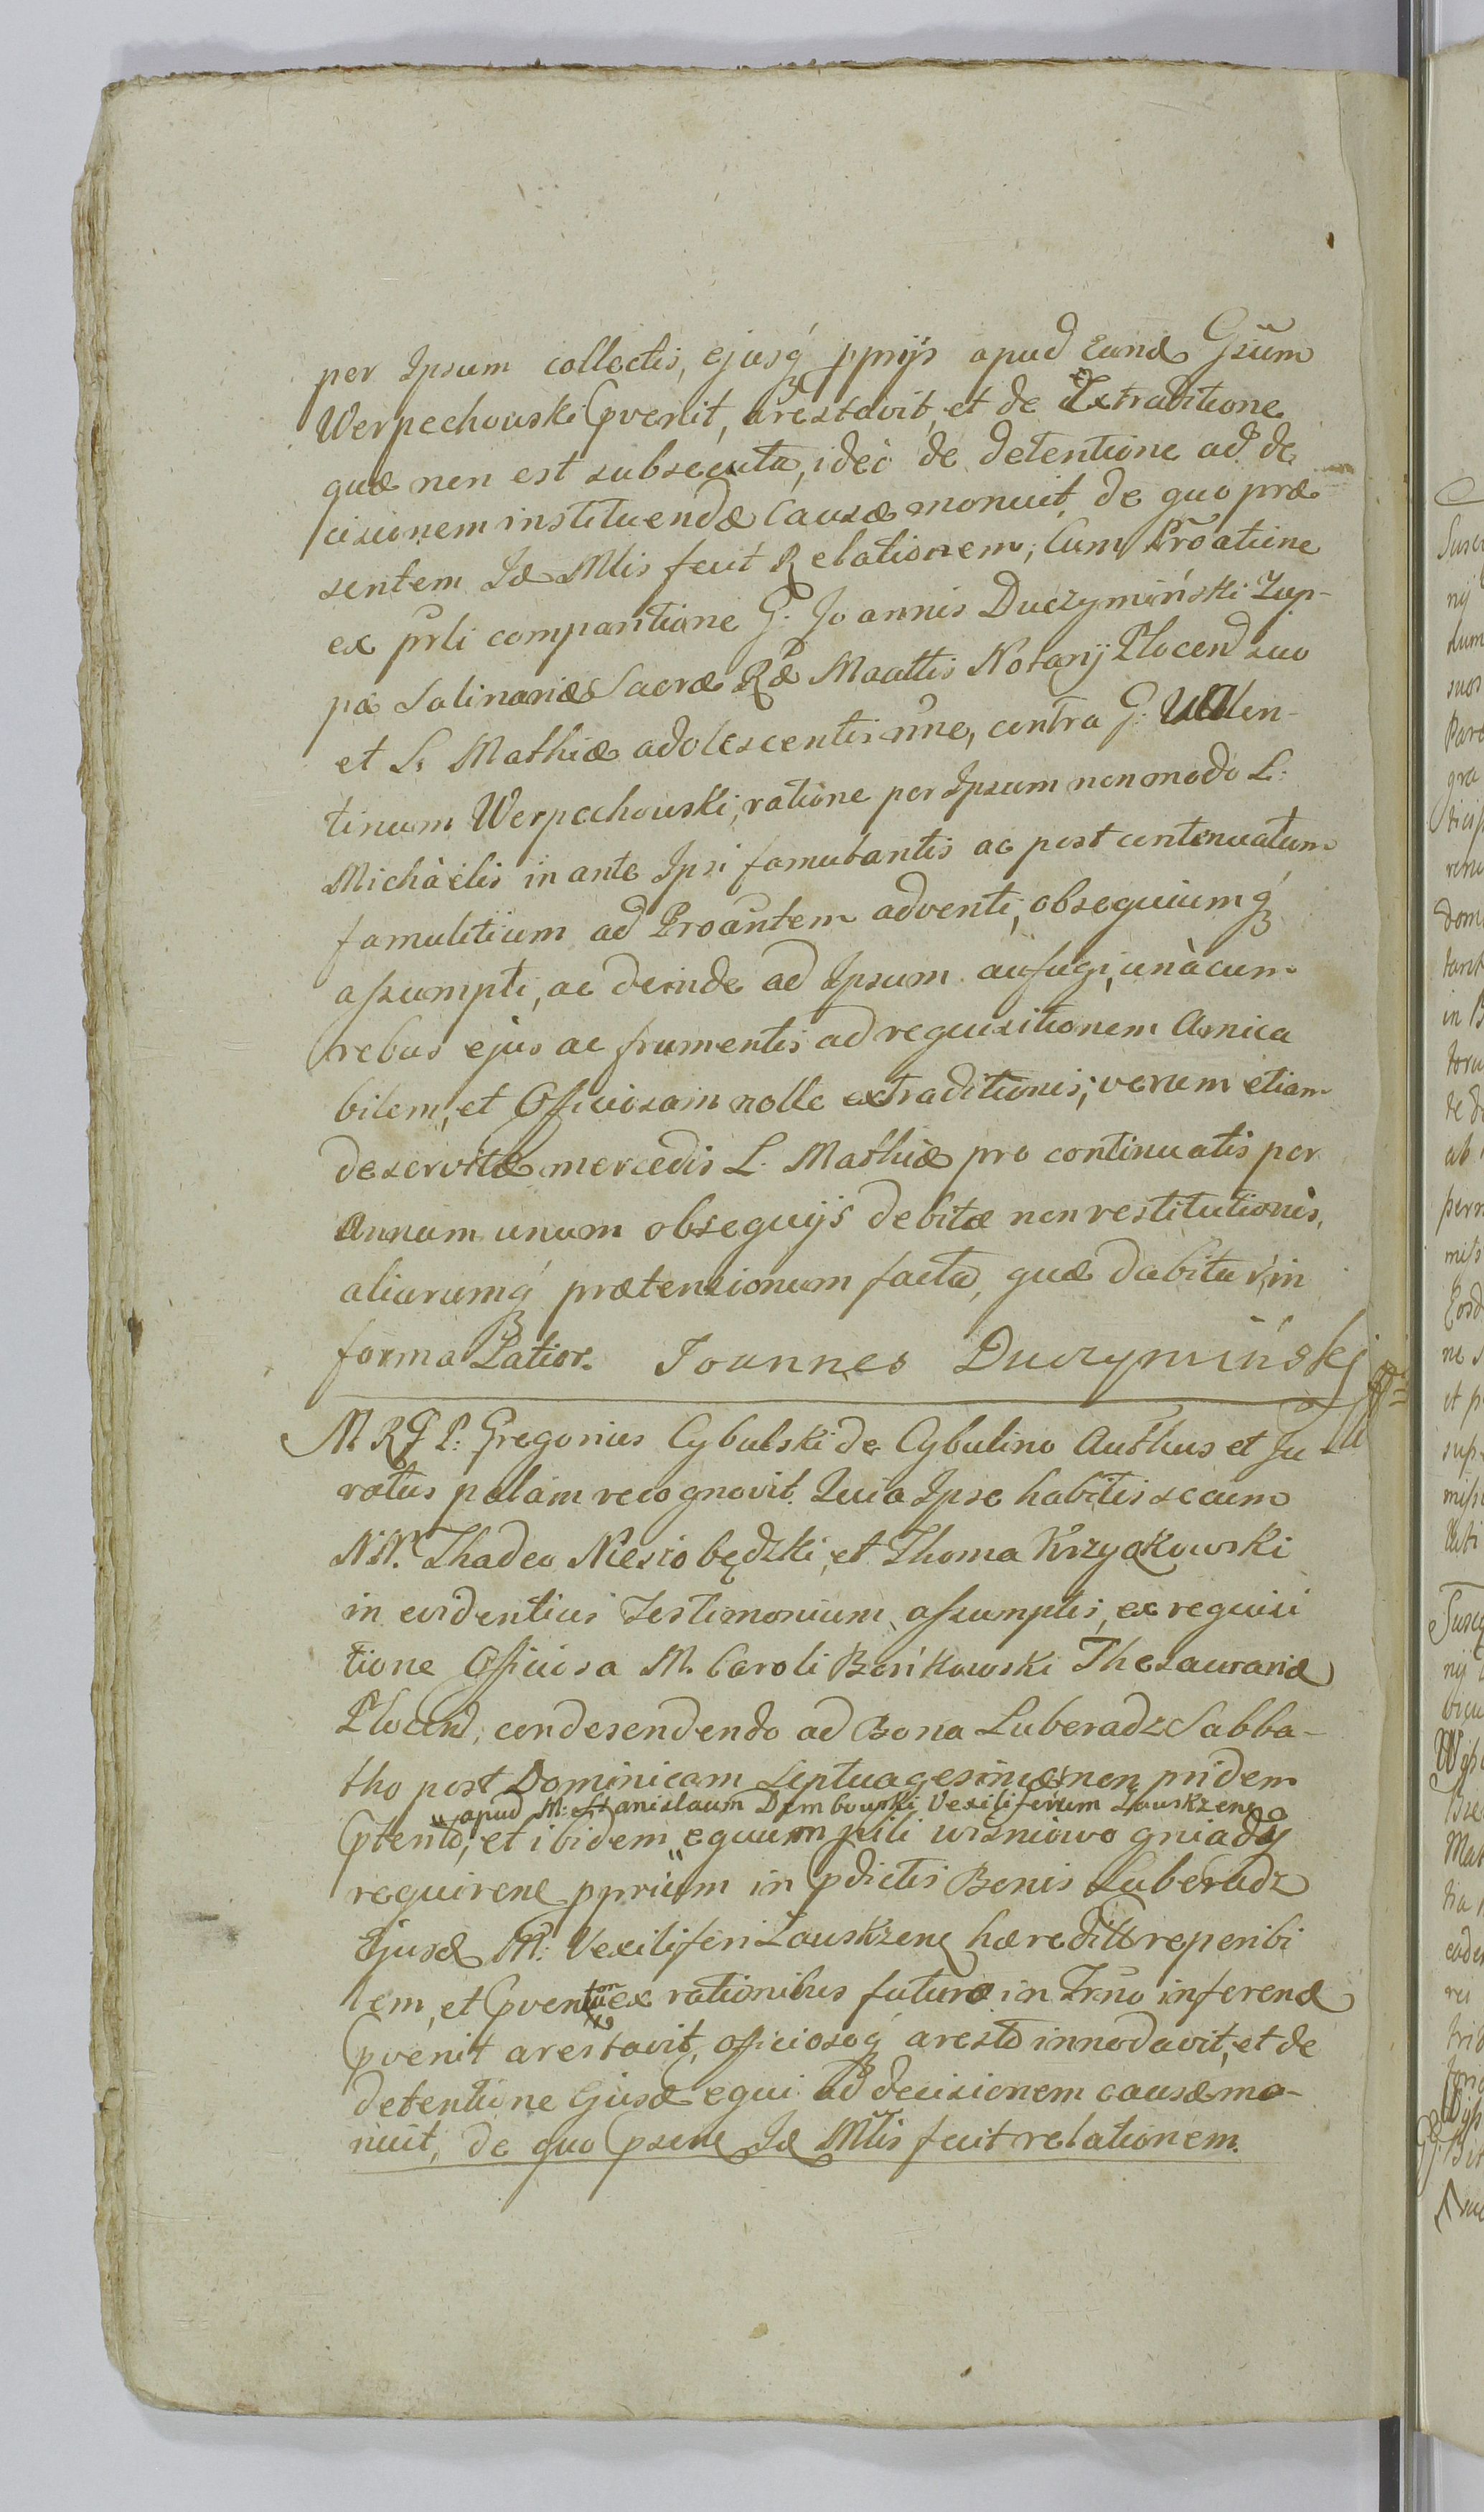 per Ipsum collectis, ejusq́ ppriys apud Eund Gsum
Werpechouski Cpvenit, arestavit, et de Extraditione
quæ non est subsecuta, ideò de detentione ad de
cisionem instituendæ Causæ monuit, de quo præ
sentem Id Mlis fecit Relationem; Cum Proatione
ex prli comparitione G. Joannis Duczymiński Zup-
pæ Salinariæ Sacræ Ræ Maattis Notarij Plocen suo
et L. Mathiæ adolescentis nne, contra G: Valen-
tinum Werpechouski, ratione per Ipsum non modo L:
Michàelis in ante Ipsi famulantis ac post continuatum
famulitium ad Proantem adventi, obsequiumq́
assumpti, ac deinde ad Ipsum aufugi, unàcum
rebus ejus ac frumentis ad requisitionem Amica
bilem, et Officiosam nolle extraditionis, verum etiam
deservitæ mercedis L. Mathiæ pro continuatis per
Annum unum obsequijs debitæ non restitutionis,
aliarumq́ prætensionum facta, quæ dabitur in
forma Latior. Joannes Duczyminski
M R G P: Gregorius Cybulski de Cybulino Authus et Ju
ratus palàm recognovit. Quia Ipse habitis secum
NN. Thadeo Niesiobędzki, et Thoma Krzyakowski
in evidentius Testimonium assumptis, ex requisi
tione Officiosa M. Caroli Bońkowski Thesaurarii
Plocen, condesendendo ad Bona Luberadz Sabba-
tho post Dominicam Septuagesimæ non pridem
apud M: Stanislaum Dembowski Vexiliferum Zauskzene
Cptento, et ibidem equum pili wisniowo gniady
requirene pprium in Cpdictis Bonis Luberadz
Ejusd M: Vexiliferi Zauskzene hæreditt reperibi
lem, et Cpventum ex rationibus futuro in Trno inferend
Cpvenit arestavit, officiosoq́ aresto innodavit, et de
detentione Ejusd equi ad decisionem causæ mo-
nuit, de quo Cpsene Id Mlis fecit relationem.